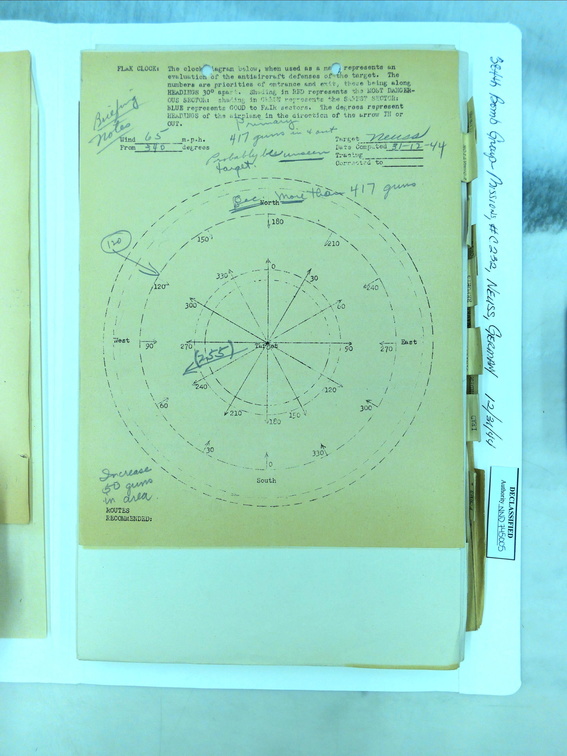 FLAK CLOCK: The clock diagram below, when used as a map represents an
evaluation of the antiaircraft defenses of the target. The
numbers are priorities of entrance and exit, these being along
HEADINGS 30° apart. Shading in RED represents the MOST DANGER-
OUS SECTORS: shading in GREEN represents the SAFEST SECTOR:
BLUE represents GOOD to FAIR sectors. The degrees represent
HEADINGS of the airplane in the direction of the arrow IN or
OUT.
Briefing
Notes
Primary
417 guns in & out
Wind 65 m.p.h.
From 340 degrees
Target Neuss
Date Computed 31-12-44
Tracing
Corrected to
Probably be unseen
target
Sec. More than 417 guns
North
180
150
210
120
120
240
330
0
30
300
60
West
90
270
Target
90
270
East
(255)
240
120
60
300
210
180
150
30
330
0
South
Increase
50 guns
in area.
ROUTES
RECOMMENDED:
384th Bomb Group Missions, #C232, Neuss, Germany 12/31/44
DECLASSIFIED
Authority NND 745005